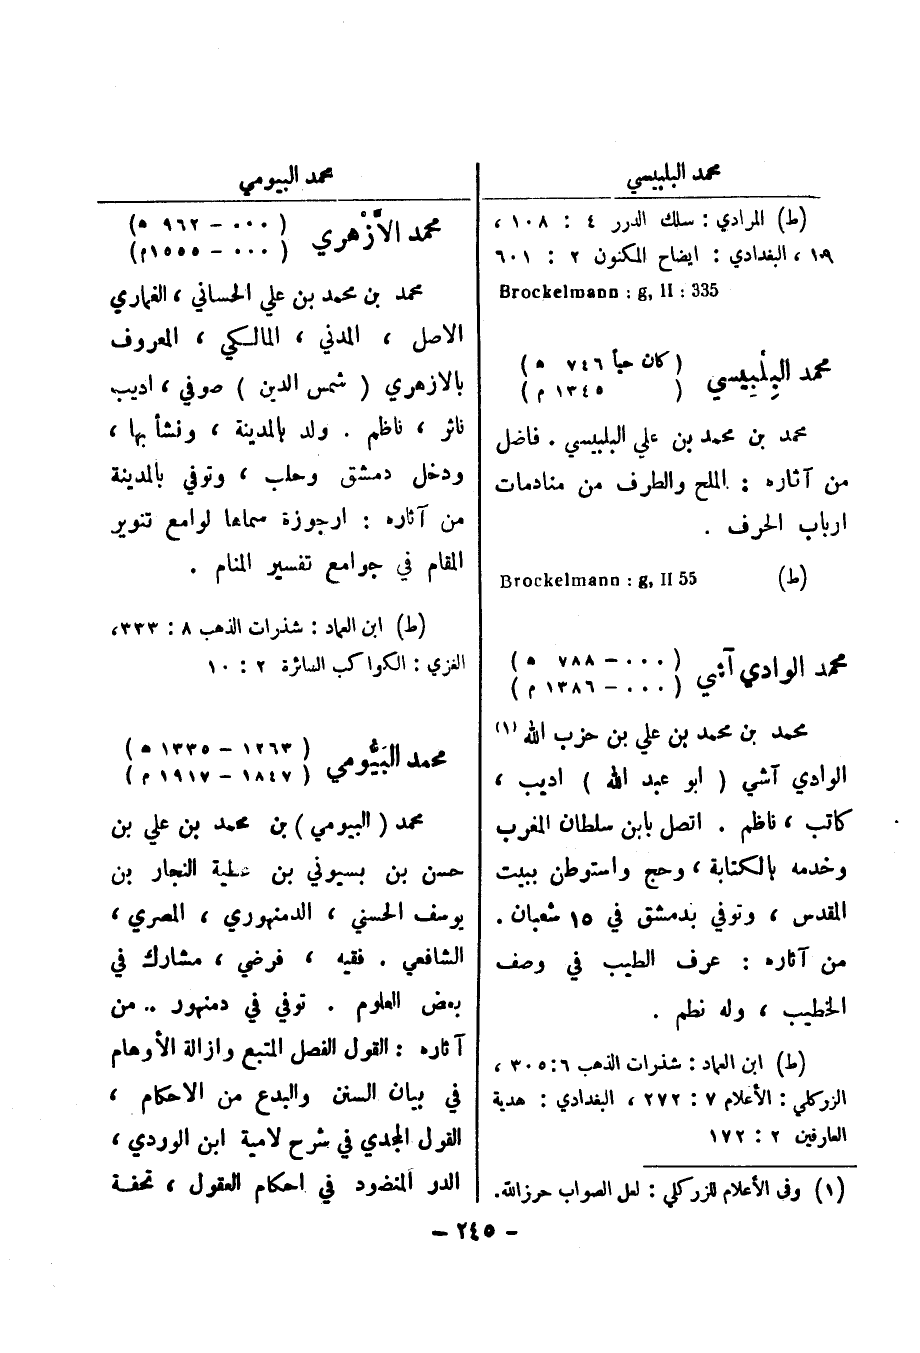 محمد البلبيسي
(ط) المرادي : سلك الدرر ٤ : ١٠٨ ،
١٠٩ ، البغدادي : ايضاح المكنون ٢ : ٦٠١
Brockelmann : g, II : 335
محمد البِلْبِيسي ( كان حياً ٧٤٦ ه )
( ١٣٤٥ م )
محمد بن محمد بن علي البلبيسي . فاضل
من آثاره : الملح والطرف من منادمات
ارباب الحرف .
(ط) Brockelmann : g, II 55
محمد الوادي آشي ( ٠٠٠ – ٧٨٨ ه )
( ٠٠٠ – ١٣٨٦ م )
محمد بن محمد بن علي بن حزب الله (١)
الوادي آشي ( ابو عبد الله ) اديب ،
كاتب ، ناظم . اتصل بابن سلطان المغرب
وخدمه بالكتابة ، وحج واستوطن ببيت
المقدس ، وتوفي بدمشق في ١٥ شعبان .
من آثاره : عرف الطيب في وصف
الخطيب ، وله نظم .
(ط) ابن العماد : شذرات الذهب ٦ : ٣٠٥ ،
الزركلي : الأعلام ٧ : ٢٧٢ ، البغدادي : هدية
العارفين ٢ : ١٧٢
(١) وفى الأعلام للزركلي : لعل الصواب حرزالله.
محمد البيومي
محمد الأَزْهري ( ٠٠٠ – ٩٦٢ ه )
( ٠٠٠ – ١٥٥٥م )
محمد بن محمد بن علي الحساني ، الغماري
الاصل ، المدني ، المالكي ، المعروف
بالازهري ( شمس الدين ) صوفي ، اديب
ناثر ، ناظم . ولد بالمدينة ، ونشأ بها ،
ودخل دمشق وحلب ، وتوفي بالمدينة
من آثاره : ارجوزة سماها لوامع تنوير
المقام في جوامع تفسير المنام .
(ط) ابن العماد : شذرات الذهب ٨ : ٣٣٣،
الغزي : الكواكب السائرة ٢ : ١٠
محمد البَيُّومي ( ١٢٦٣ – ١٣٣٥ ه )
( ١٨٤٧ – ١٩١٧ م )
محمد ( البيومي ) بن محمد بن علي بن
حسن بن بسيوني بن عطية النجار بن
يوسف الحسني ، الدمنهوري ، المصري ،
الشافعي . فقيه ، فرضي ، مشارك في
بعض العلوم . توفي في دمنهور .. من
آثاره : القول الفصل المتبع وازالة الأوهام
في بيان السنن والبدع من الاحكام ،
القول المجدي في شرح لامية ابن الوردي ،
الدر المنضود في احكام العقول ، تحفة
– ٢٤٥ –